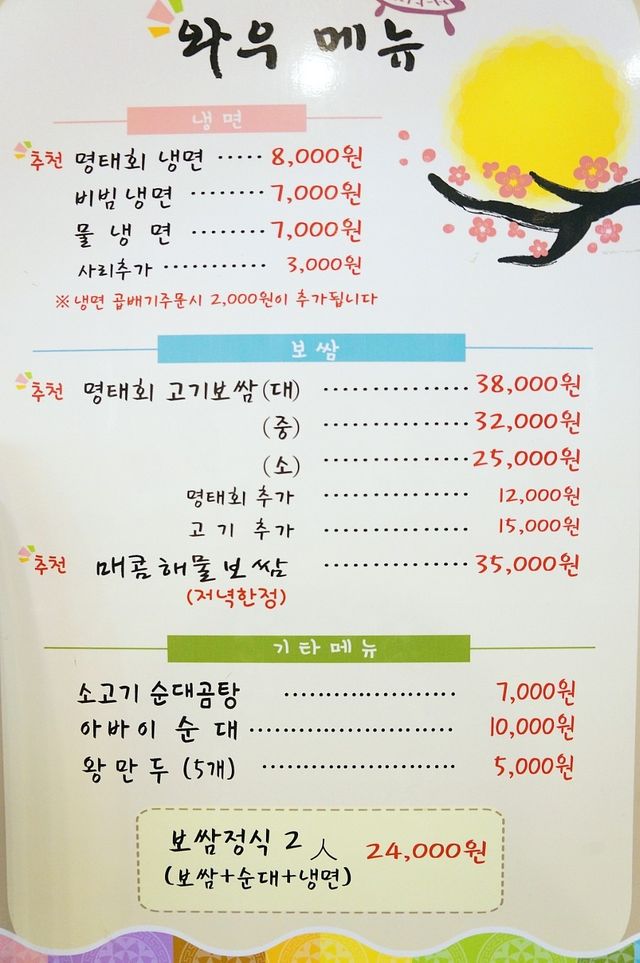 와우 메뉴
냉면
추천 명태회 냉면 ····· 8,000원
비빔냉면 ········ 7,000원
물 냉 면 ········ 7,000원
사리추가 ··········· 3,000원
※ 냉면 곱배기주문시 2,000원이 추가됩니다
보쌈
추천 명태회 고기보쌈(대) ··············· 38,000원
(중) ··············· 32,000원
(소) ··············· 25,000원
명태회 추가 ··············· 12,000원
고 기 추 가 ··············· 15,000원
추천 매콤해물보쌈 ··············· 35,000원
(저녁한정)
기타메뉴
소고기 순대곰탕 ····················· 7,000원
아바이 순 대 ························· 10,000원
왕만두 (5개) ······················· 5,000원
보쌈정식 2人 24,000원
(보쌈+순대+냉면)